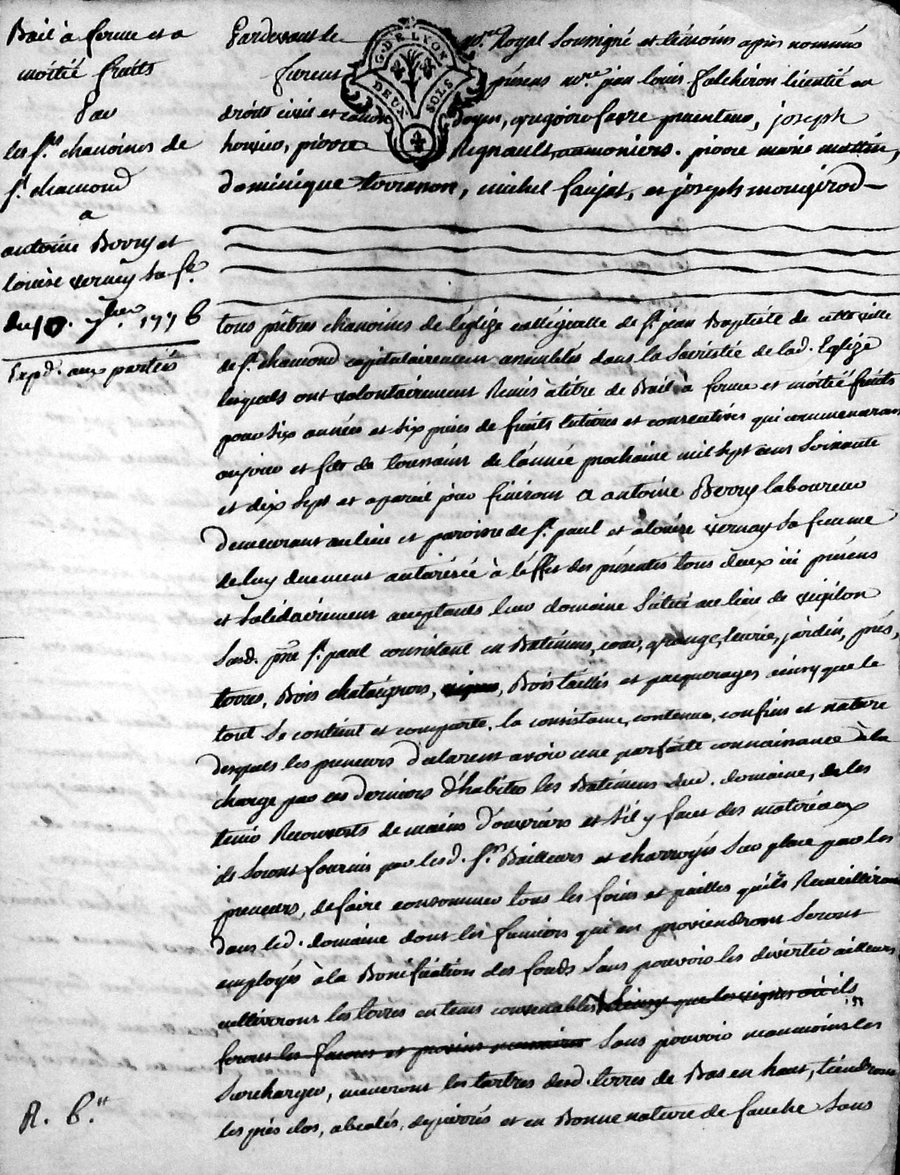 Bail à ferme et a
moitié fruits
Par
les srs chanoines de
st chamond
a
antoine Berry et
louise vernay sa fe
du 10. 7bre 1776
Expd. aux parties
G. DE LYON
DEUX SOLS
Pardevant le nre Royal soussigné et témoins après nommés
furent présens mre jean louis falchiron licentié en
droits civil et canon doyen, gregoire favre précenteur, joseph
hervier, pierre Regnault, aumoniers. pierre marie mottin,
dominique terranon, michel faujat, et joseph mougirod
tous prêtres chanoines de l'église collégialle de st jean Baptiste de cette ville
de st chamond capitulairement assemblés dans la Sacristie de lad. Eglise
lesquels ont volontairement Remis à titre de Bail à ferme et moitié fruits
pour six années et six prises de fruits entieres et consecutives qui commenceront
au jour et fete de toussaint de l'année prochaine mil sept cens soixante
et dix sept et à pareil jour finiront a antoine Berry laboureur
demeurant au lieu et paroisse de st paul et à louise vernay sa femme
de luy duement autorisée à l'effet des présentes tous deux ici présens
et solidairement acceptants leur domaine situé au lieu de vigilon
susd. psse st paul consistant en Batimens, cour, grange, écurie, jardin, prés,
terres, Bois chataigners, vignes, Bois taillis et pacquerages ainsy que le
tout se contient et comporte, la consistance, contenue, confins et nature
desquels les preneurs déclarent avoir une parfaite connaissance à la
charge par ces derniers d'habiter les Batimens dud. domaine, de les
tenir Recouverts de mains d'ouvriers et s'il y faut des matereaux
ils seront fournis par lesd. srs Bailleurs et charroyés sur place par les
preneurs, de faire consommer tous les foins et pailles qu'ils Recueilliront
dans led. domaine dont les fumiers qui en proviendront seront
employés à la Bonification des fonds sans pouvoir les divertir ailleurs
cultiveront les terres en tems convenables ainsy que les vignes où ils
feront les facons et provins necessaires sans pouvoir neanmoins les
surcharger, meneront les tertres desd. terres de Bas en haut, tiendront
les prés clos, abealés, épierrés et en Bonne nature de fauche sans
R. b.